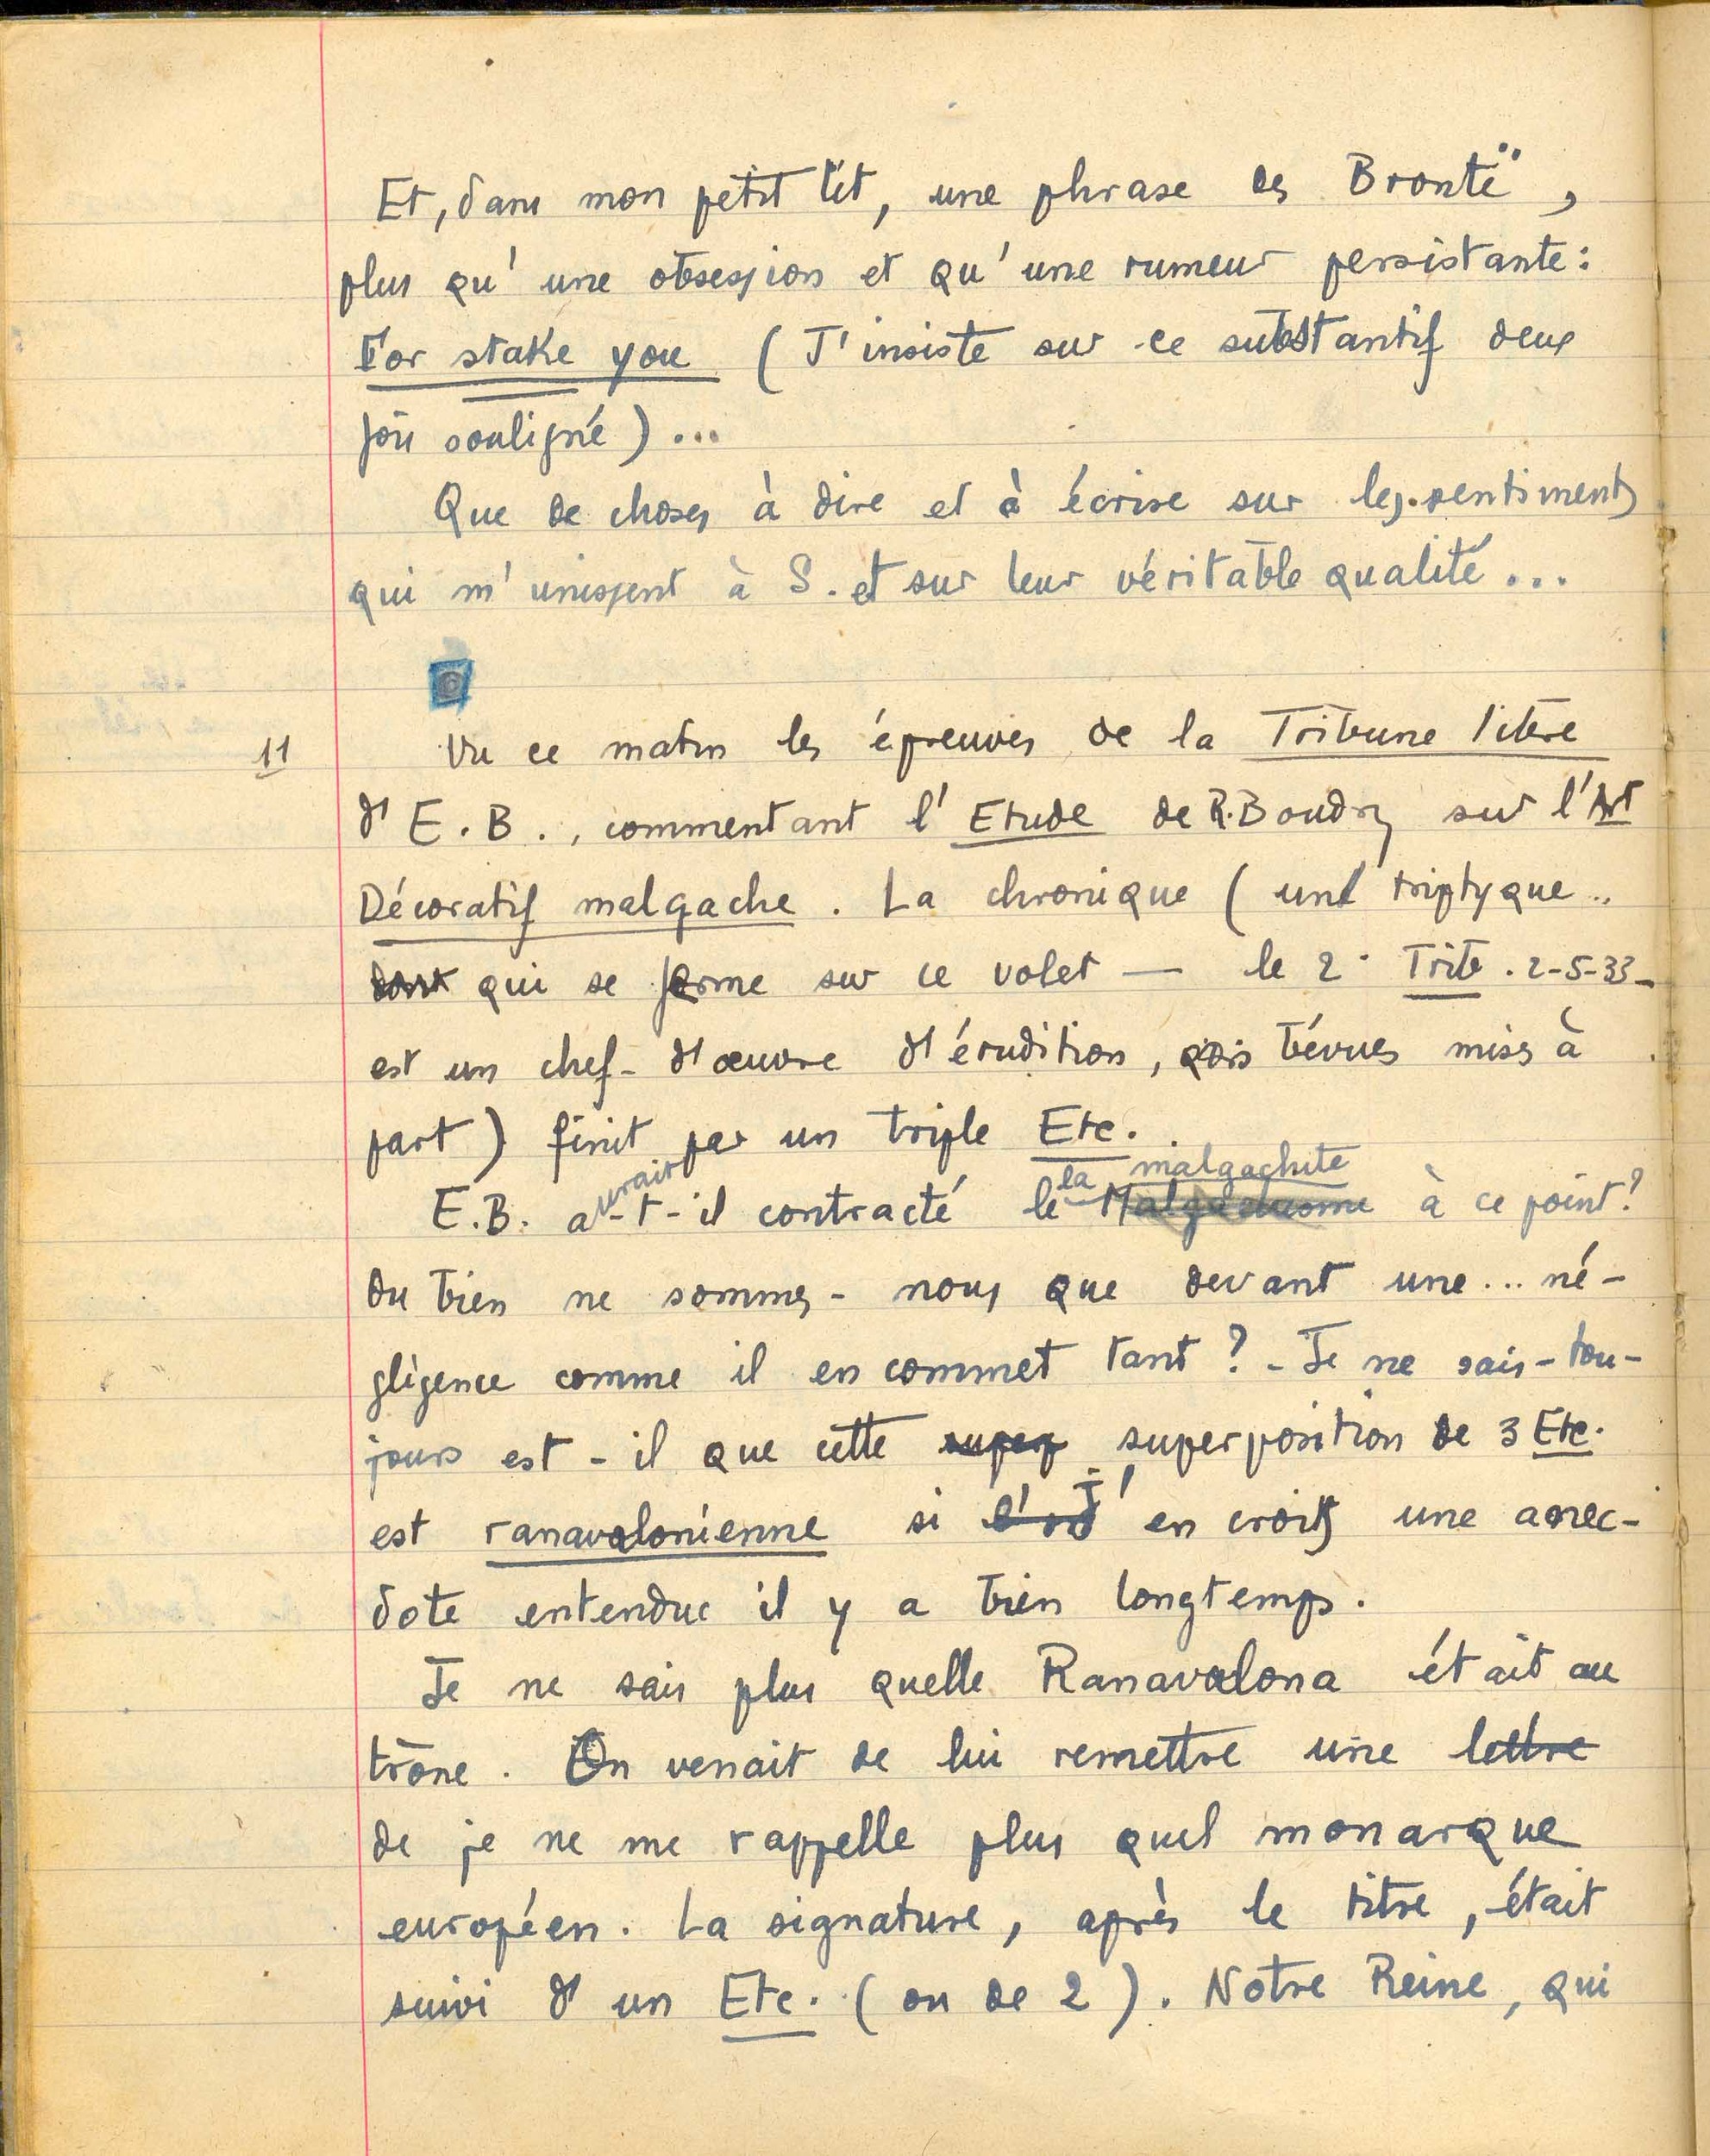 Et, dans mon petit lit, une phrase des Brontë,
plus qu'une obsession et qu'une rumeur persistante :
For stake you (J'insiste sur ce substantif deux
fois souligné)...
Que de choses à dire et à écrire sur les sentiments
qui m'unissent à S. et sur leur véritable qualité...
11 Vu ce matin les épreuves de la Tribune libre
d'E.B., commentant l'Etude de R.Boudry sur l'Art
Décoratif malgache. La chronique (une triptyque..
dont qui se ferme sur ce volet — le 2. Trib. 2-5-33-
est un chef-d'œuvre d'érudition, bévues mises à
part) finit par un triple Etc.
la malgachite
E.B. aurait-t-il contracté le à ce point?
Ou bien ne sommes-nous que devant une... né-
gligence comme il en commet tant? - Je ne sais - tou-
jours est-il que cette super superposition de 3 Etc.
est ranavalonienne si j'en crois une anec-
dote entendue il y a bien longtemps.
Je ne sais plus quelle Ranavalona était au
trône. On venait de lui remettre une lettre
de je ne me rappelle plus quel monarque
européen. La signature, après le titre, était
suivi d'un Etc. (ou de 2). Notre Reine, qui